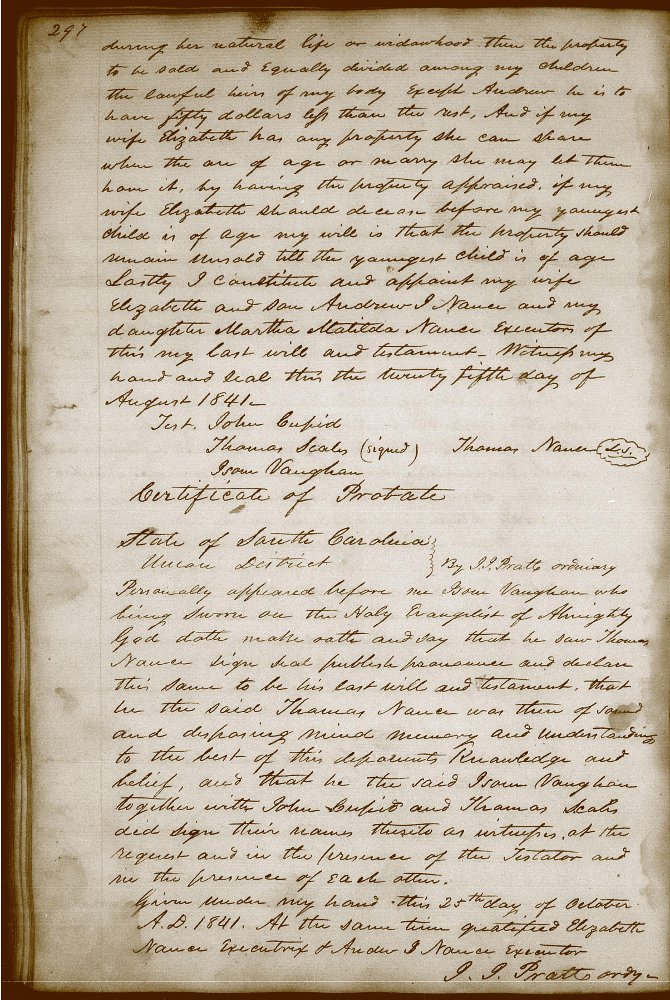 297
during her natural life or widowhood then the property
to be sold and Equally divided among my children
the lawful heirs of my body Except Andrew he is to
have fifty dollars less than the rest, And if my
wife Elizabeth has any property she can share
when the are of age or marry she may let them
have it, by having the property appraised. if my
wife Elizabeth should decease before my youngest
child is of age my will is that the property should
remain unsold till the youngest child is of age
Lastly I constitute and appoint my wife
Elizabeth and son Andrew J Nance and my
daughter Martha Matilda Nance Executors of
this my last will and testament - Witness my
hand and seal this the twenty fifth day of
August 1841 -
Test. John Cupid
Thomas Scales (signed) Thomas Nance L.S.
Isom Vaughan
Certificate of Probate
State of South Carolina
Union District } By J.J. Pratt ordinary
Personally appeared before me Isom Vaughan who
being sworn on the Holy Evangelist of Almighty
God doth make oath and say that he saw Thomas
Nance sign seal publish pronounce and declare
this same to be his last will and testament, that
he the said Thomas Nance was then of sound
and disposing mind memory and understanding
to the best of this deponents Knowledge and
belief, and that he the said Isom Vaughan
together with John Cupid and Thomas Scales
did sign their names thereto as witness, at the
request and in the presence of the Testator and
in the presence of Each other.
Given under my hand this 25th day of October
A.D. 1841. At the same time qualified Elizabeth
Nance Executrix & Andw J Nance Executor
J. J. Pratt ordy -